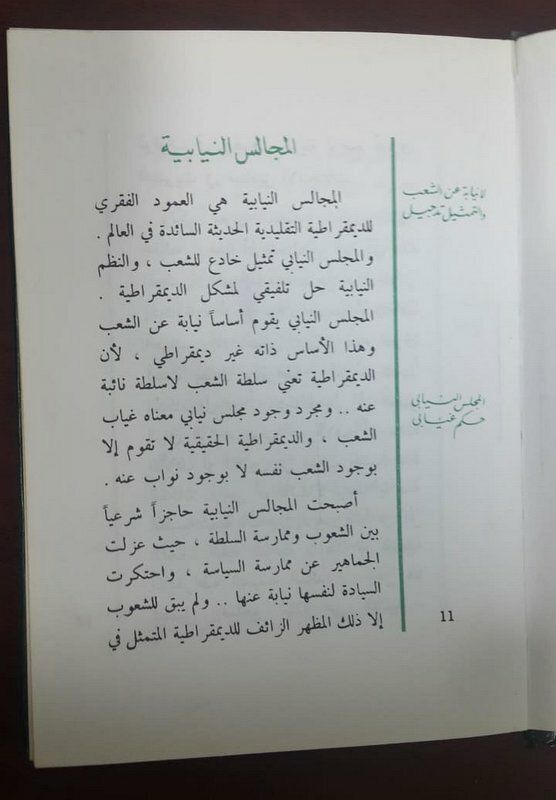 المجالس النيابية
لا نيابة عن الشعب
والتمثيل تدجيل
المجالس النيابية هي العمود الفقري
للديمقراطية التقليدية الحديثة السائدة في العالم .
والمجلس النيابي تمثيل خادع للشعب ، والنظم
النيابية حل تلفيقي لمشكل الديمقراطية .
المجلس النيابي يقوم أساساً نيابة عن الشعب
وهذا الأساس ذاته غير ديمقراطي ، لأن
الديمقراطية تعني سلطة الشعب لاسلطة نائبة
عنه .. ومجرد وجود مجلس نيابي معناه غياب
الشعب ، والديمقراطية الحقيقية لا تقوم إلا
بوجود الشعب نفسه لا بوجود نواب عنه .
المجلس النيابي
حكم غيابي
أصبحت المجالس النيابية حاجزاً شرعياً
بين الشعوب وممارسة السلطة ، حيث عزلت
الجماهير عن ممارسة السياسة ، واحتكرت
السيادة لنفسها نيابة عنها .. ولم يبق للشعوب
إلا ذلك المظهر الزائف للديمقراطية المتمثل في
11